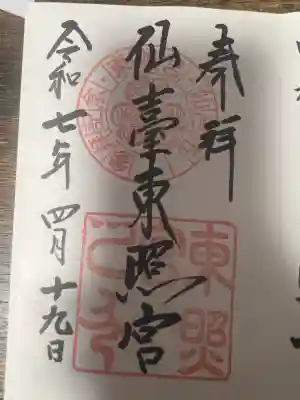 奉拝
仙臺東照宮
令和七年四月十九日
東照